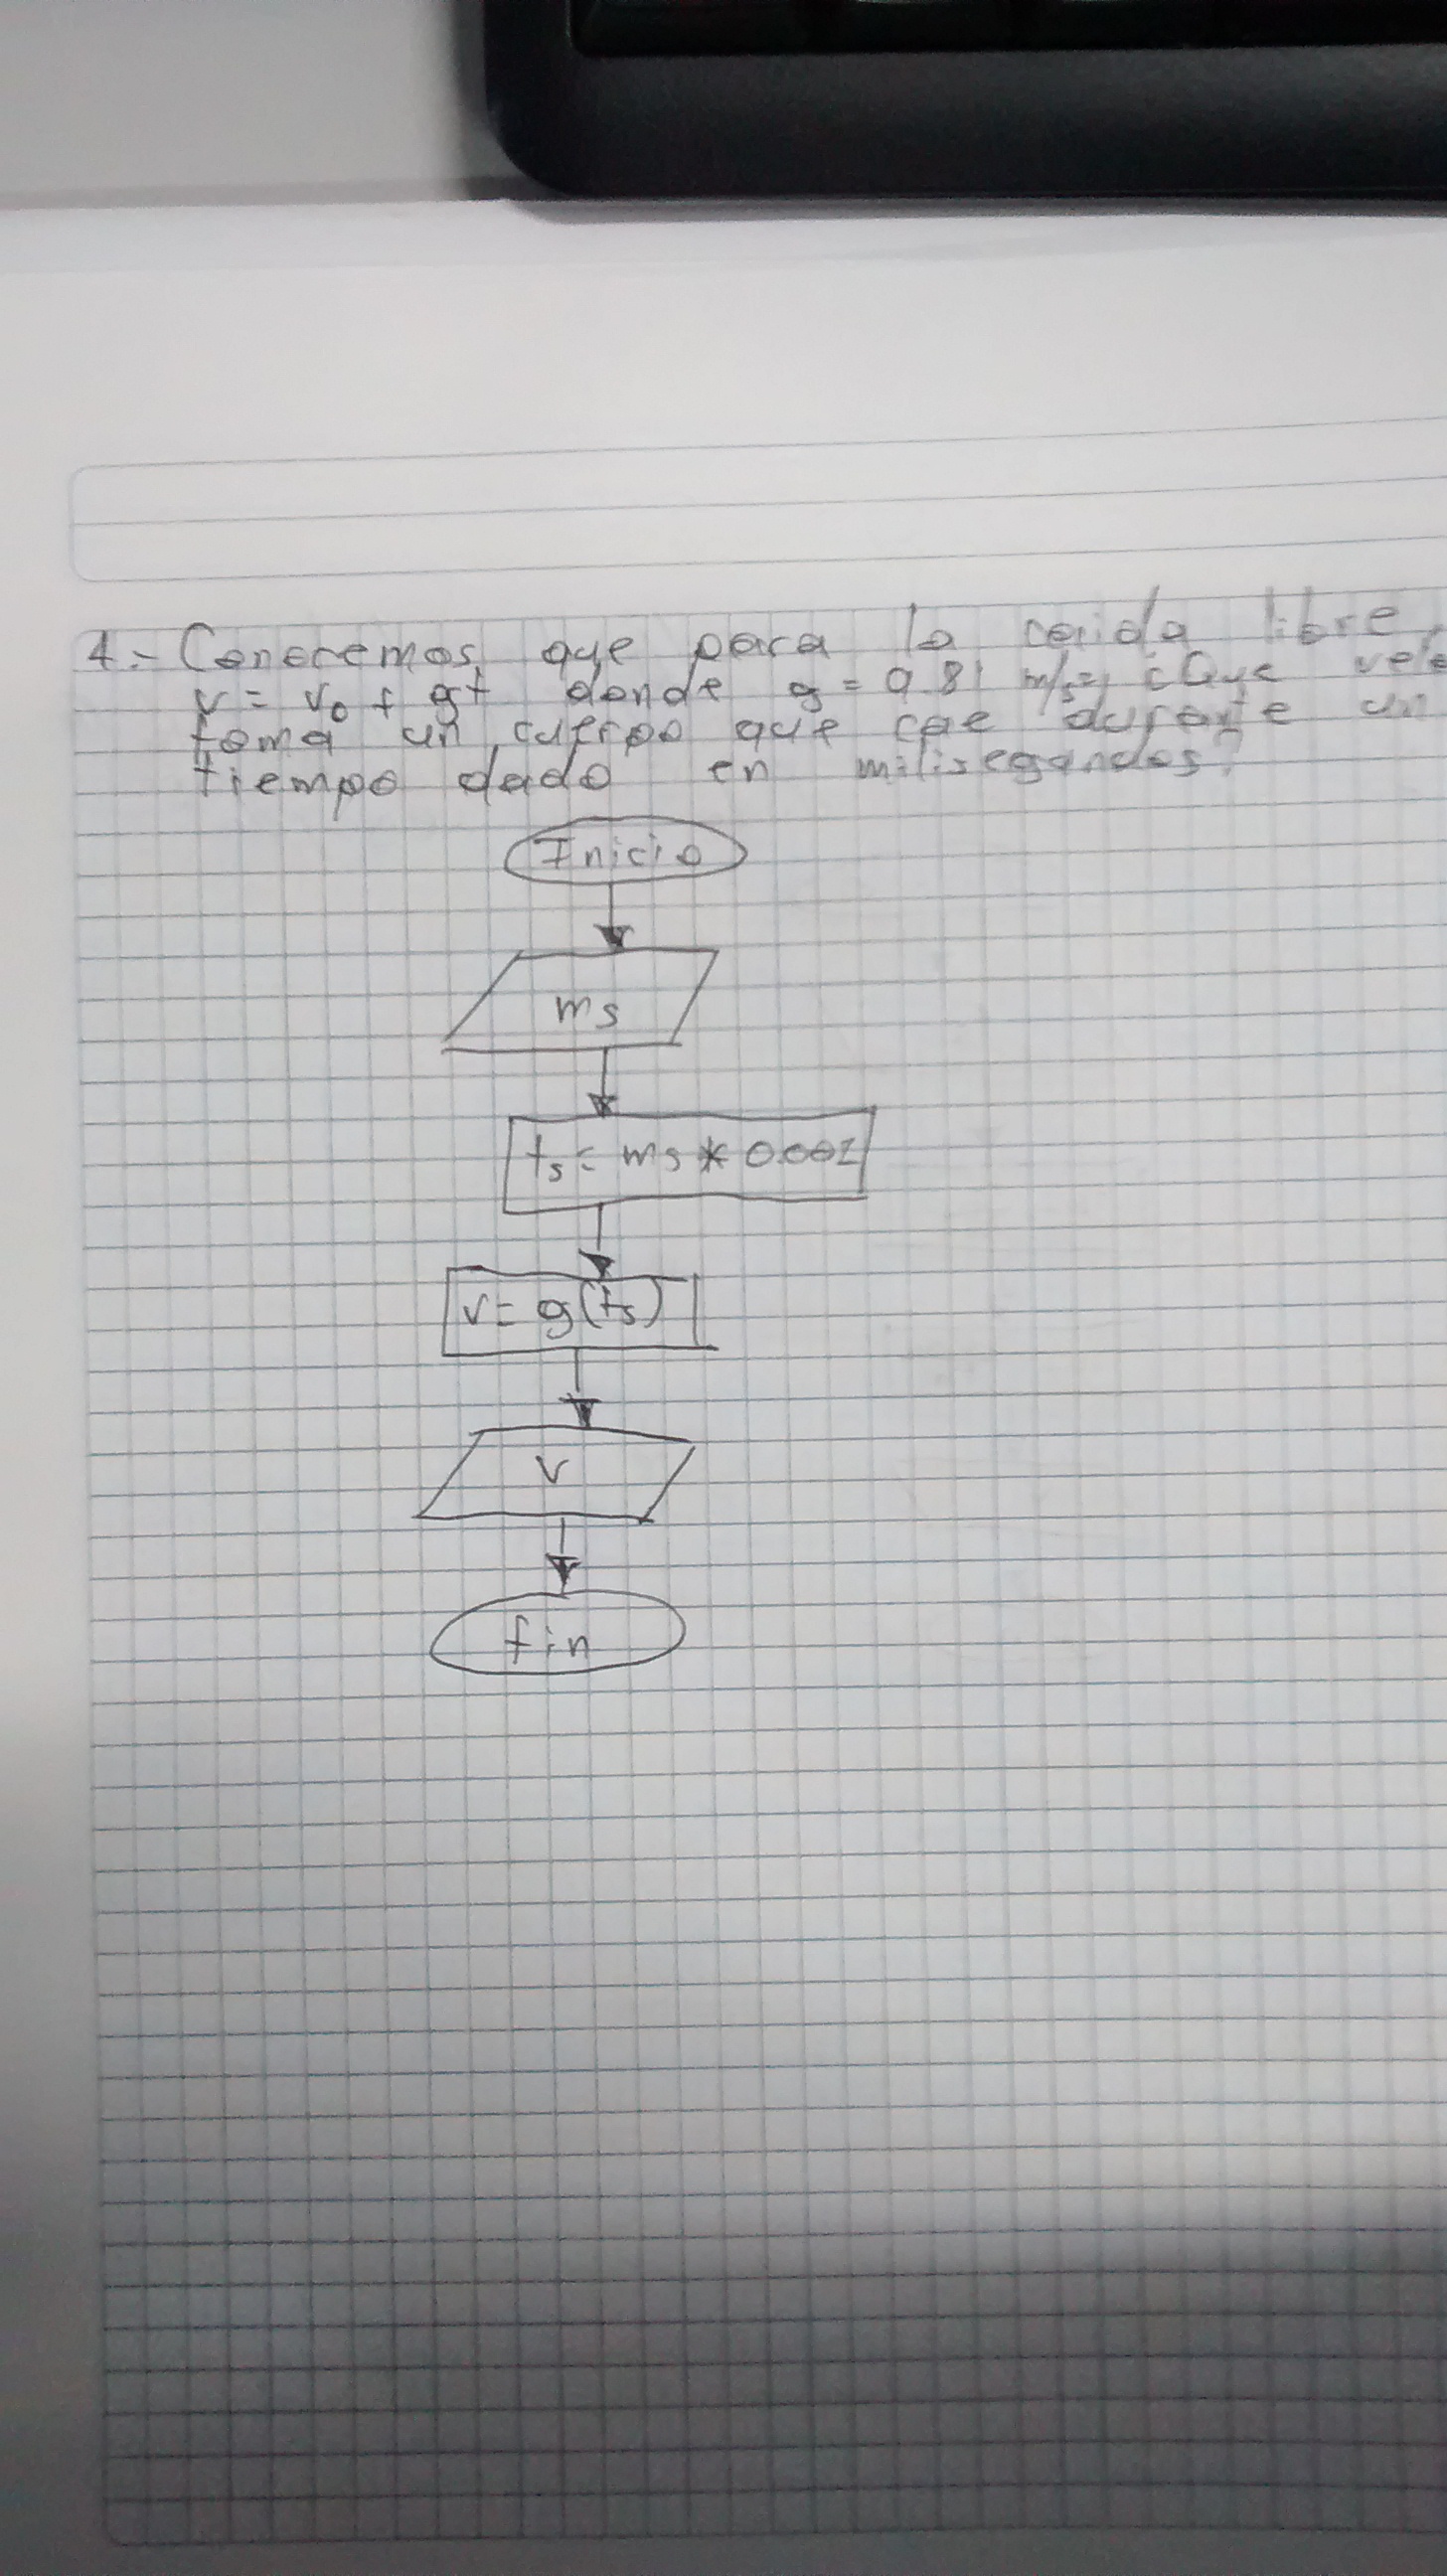 4.- Conocemos que para la caida libre,
v = v₀ + gt donde g = 9.81 m/s², ¿Que velo
toma un cuerpo que cae durante un
tiempo dado en milisegundos?
Inicio
ms
ts = ms * 0.001
v = g(ts)
v
fin